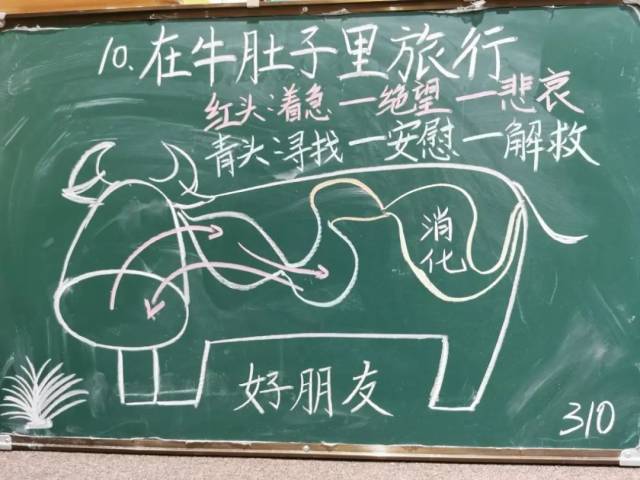 10.在牛肚子里旅行
红头:着急—绝望—悲哀
青头:寻找—安慰—解救
消化
好朋友
310